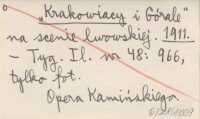 „Krakowiacy i Górale”
na scenie lwowskiej. 1911.
— Tyg. Il. nr 48: 966,
tylko fot.
Opera Kamińskiego.